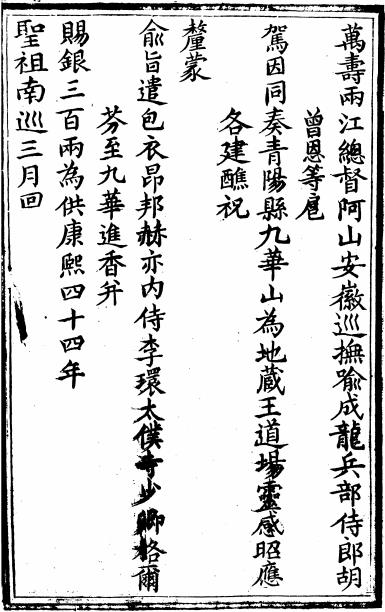 萬壽兩江總督阿山安徽巡撫喻成龍兵部侍郎胡
曾恩等扈
駕因同奏青陽縣九華山為地蔵王道場靈感昭應
各建醮祝
釐蒙
俞旨遣包衣昂邦赫亦內侍李環太僕寺少卿格爾
芬至九華進香并
賜銀三百兩為供康熙四十四年
聖祖南巡三月回